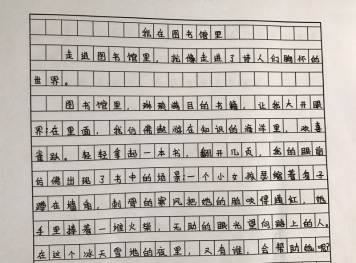 我在图书馆里
走进图书馆里，就像走进了诗人们胸怀的
世界。
图书馆里，琳琅满目的书籍，让我大开眼
界；在里面，我仿佛遨游在知识的海洋里，欢喜
雀跃。轻轻拿起一本书，翻开几页，我的眼前
仿佛出现了书中的场景：一个小女孩缩着身子
蹲在墙角，刺骨的寒风把她的脸吹得通红，她
手里捧着一堆火柴，无助的眼光望向路上的人。
在这个冰天雪地的夜里，又有谁，会帮助她呢？